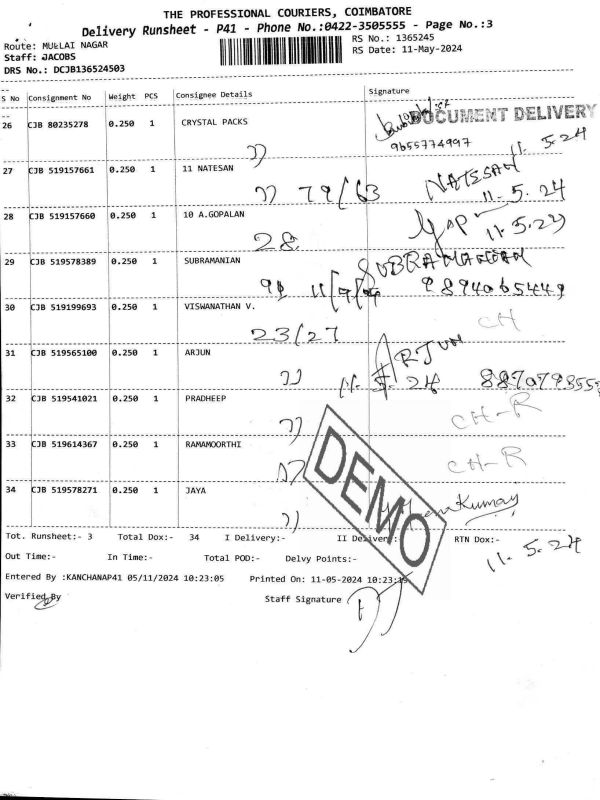 THE PROFESSIONAL COURIERS, COIMBATORE
Delivery Runsheet - P41 - Phone No.:0422-3505555 - Page No.:3
Route: MULLAI NAGAR
RS No.: 1365245
Staff: JACOBS
RS Date: 11-May-2024
DRS No.: DCJB136524503
S No Consignment No Weight PCS Consignee Details Signature
DOCUMENT DELIVERY
26 CJB 80235278 0.250 1 CRYSTAL PACKS
9655774997 11.5.24
27 CJB 519157661 0.250 1 11 NATESAN NATESAN
79/63 11.5.24
28 CJB 519157660 0.250 1 10 A.GOPALAN
28 11.5.24
29 CJB 519578389 0.250 1 SUBRAMANIAN SUBRAMANIAN
9894065449
30 CJB 519199693 0.250 1 VISWANATHAN V. CH
23/27
31 CJB 519565100 0.250 1 ARJUN ARJUN
11.5.24
32 CJB 519541021 0.250 1 PRADHEEP CH-R
33 CJB 519614367 0.250 1 RAMAMOORTHI CH-R
34 CJB 519578271 0.250 1 JAYA
DEMO
Tot. Runsheet:- 3 Total Dox:- 34 I Delivery:- II Delivery:- RTN Dox:-
11.5.24
Out Time:- In Time:- Total POD:- Delvy Points:-
Entered By :KANCHANAP41 05/11/2024 10:23:05 Printed On: 11-05-2024 10:23:15
Verified By Staff Signature